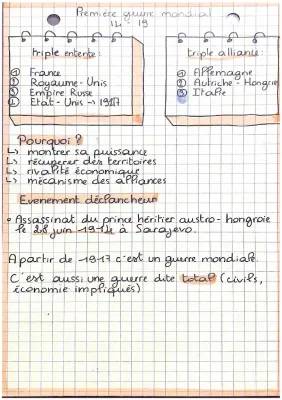 Première guerre mondial
14 - 19
triple entente:
① France
② Royaume-Unis
③ Empire Russe
④ Etat-Unis → 1917
triple alliance:
① Allemagne
② Autriche-Hongrie
③ Italie
Pourquoi?
↳ montrer sa puissance
↳ récuperer des territoires
↳ rivalité économique
↳ mécanisme des alliances
Evenement déclancheur
• Assassinat du prince héritier austro-hongroie
le 28 juin 1914 à Sarajevo.
A partir de 1917 c'est un guerre mondiale.
C'est aussi une guerre dite total (civils,
économie impliqués)